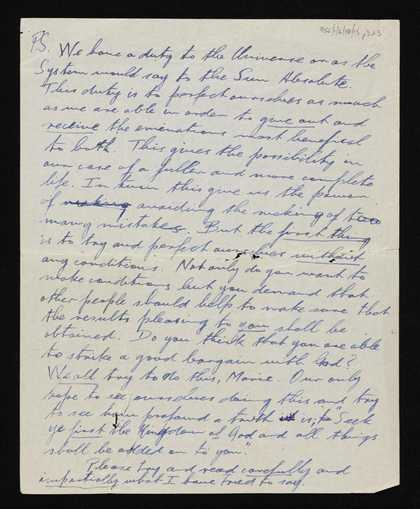 P.S. We have a duty to the Universe or as the
System would say to the Sun Absolute.
This duty is to perfect ourselves as much
as we are able in order to give out and
receive the emanations most beneficial
to both. This gives the possibility in
our case of a fuller and more complete
life. In turn this give us the power
of making avoiding the making of too
many mistakes. But the first thing
is to try and perfect ourselves without
any conditions. Not only do you want to
make conditions but you demand that
other people should help to make some that
the results pleasing to you shall be
obtained. Do you think that you are able
to strike a good bargain with God?
We all try to do this, Marie. Our only
hope to see ourselves doing this and try
to see how profound a truth it is, to "Seek
ye first the Kingdom of God and all things
shall be added on to you".
Please try and read carefully and
impartially what I have tried to say.